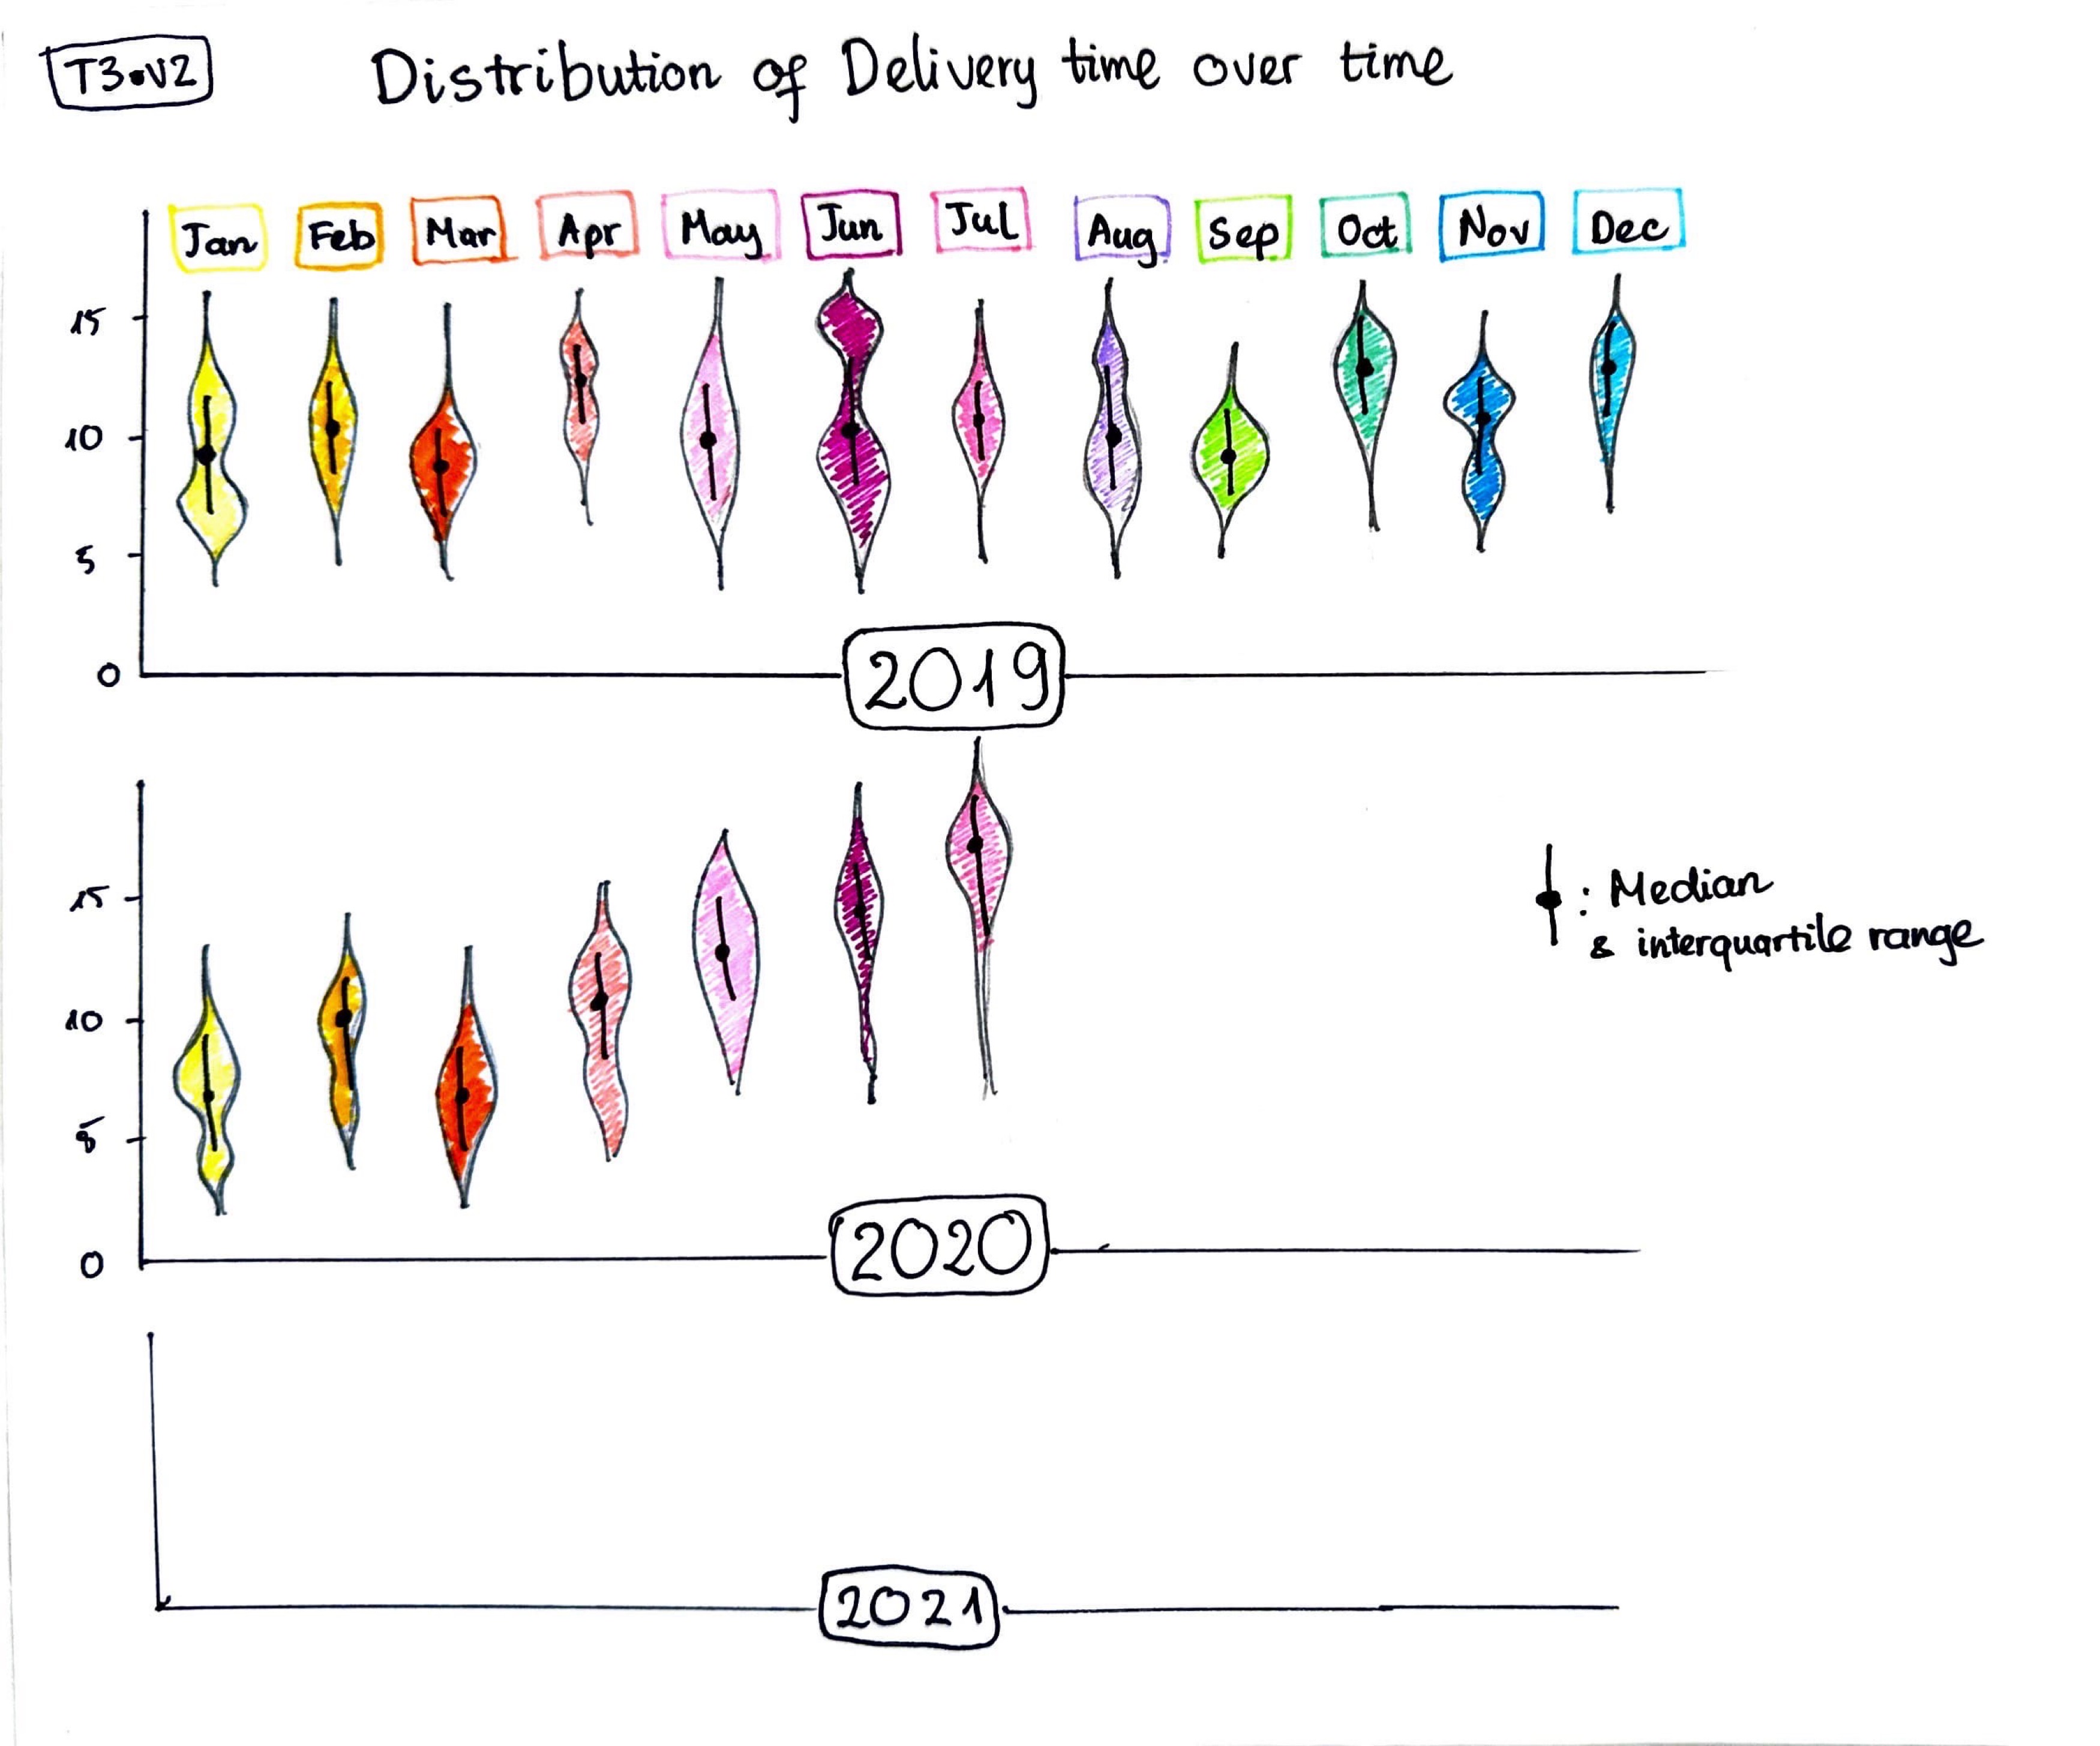 T3.V2
Distribution of Delivery time over time
Jan Feb Mar Apr May Jun Jul Aug Sep Oct Nov Dec
15
10
5
0
2019
15
10
5
0
: Median
& interquartile range
2020
2021